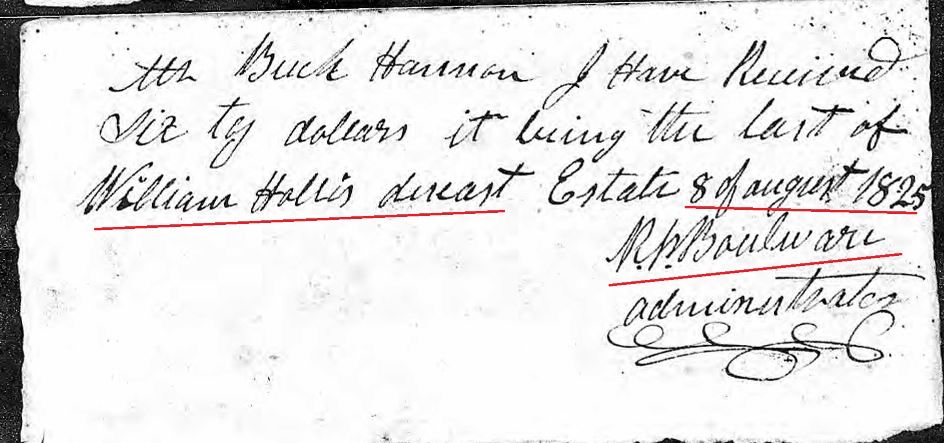 Mr Buck Hannon I Have Received
Six ty dollars it being the last of
William Hollis deceast Estate 8 of august 1825
R. P. Boulware
administrator